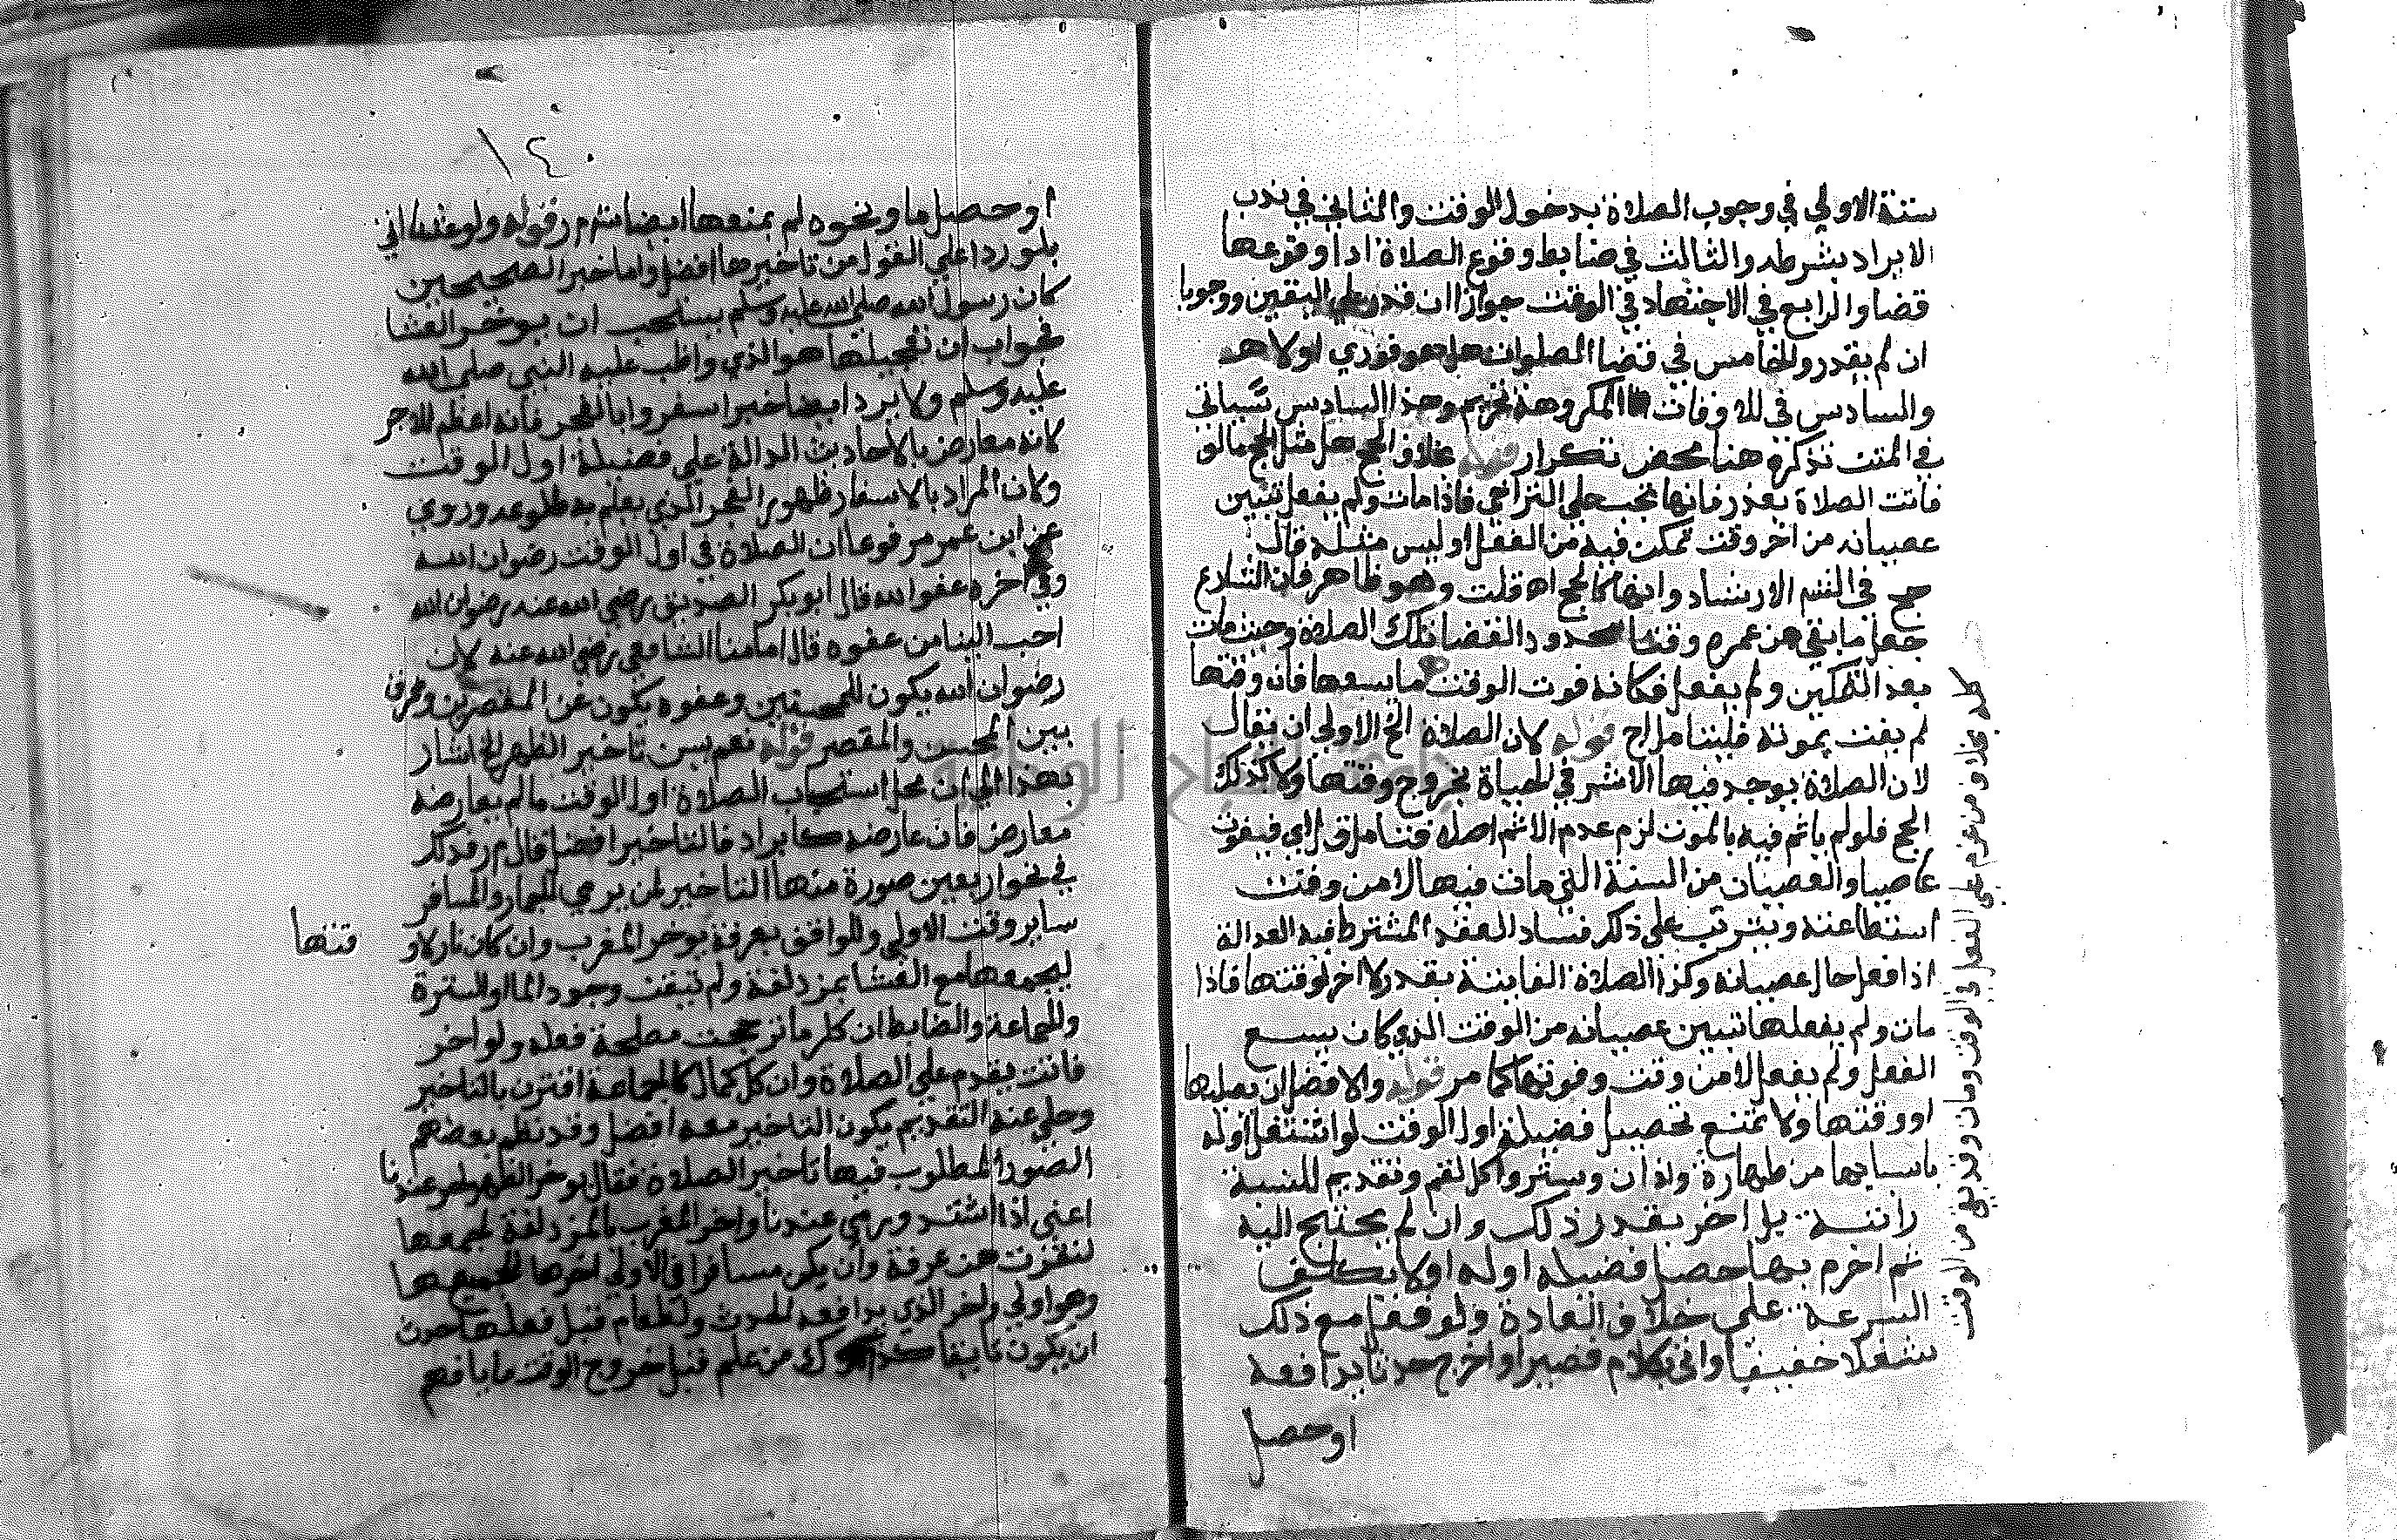 ستة الاولي في وجوب الصلاة بدخول الوقت والثاني في ندب
الابراد بشرطه والثالث في ضابط وقوع الصلاة ادا وقوعها
قضا والرابع في الاجتهاد في الوقت جوازا ان قدر علي اليقين ووجوبا
ان لم يقدر والخامس في قضا الصلوات هل هو فوري اولا هد
والسادس في للاوقات المكروهة تحريم وهذا السادس سياتي
في المتن تذكره هنا محض تكرار قوله بخلاف الحج هل مثل الحج مالو
فاتت الصلاة بعذر فانها تجب علي التراخي فاذا مات ولم يفعل تبين
عصيانه من اخر وقت تمكن فيه من الفعل اوليس مثله قال
حج في الارشاد وانها كالحج اه قلت وهو ظاهر فان الشارع
جعل ما بقي من عمره وقتا محدود القضا تلك الصلاة وحيث مات
بعد التمكين ولم يفعل فكانه فوت الوقت ما يسعها فان وقتها
لم يفت بموته فليتامل اج قوله لان الصلاة الخ الاولي ان يقال
لان الصلاة يوجد فيها الاثم في الحياة بخروج وقتها ولا كذلك
الحج فلو لم ياثم فيه بالموت لزم عدم الاثم اصلا فتامل ق ل اي فيفوت
عاصيا والعصيان من السنة التي مات فيها لا من وقت
استطاعته ويترتب علي ذلك فساد العقد المشترط فيه العدالة
اذا فعل حال عصيانه وكذا الصلاة الفايتة بقدر لا اخر لوقتها فاذا
مات ولم يفعلها تبين عصيانه من الوقت الذي كان يسع
الفعل ولم يفعل لا من وقت وفوتها كما مر قوله والافضل ان يصليها
اوو قتها ولا يمتنع تحصيل فضيلة اول الوقت لو اشتغل اوله
باسبابها من طهارة واذان وستر واكل لقم وتقديم للسنة
راتبة بل اخر بقدر ذلك وان لم يحتج اليه
ثم اخرم بها حصل فضيلة اوله اولا يكلف
السرعة علي خلاف العادة ولو فعل مع ذلك
شغلا خفيفا واتي بكلام قصير او اخرج حدثا يدافعه
اوحصل
محله بخلاف من عزم علي الفعل في الوقت ومات وقد بقي من الوقت
١٤٠
اوحصل ما ونحوه لم يمنعها ايضا م ر قوله ولو عشا اتي
بلو ردا علي القول من تاخيرها افضل واما خبر الصحيحين
كان رسول الله صلي الله عليه وسلم يستحب ان يوخر العشا
فجواب ان تعجيلها هو الذي واظب عليه النبي صلي الله
عليه وسلم ولا يرد ايضا خبر اسفروا بالفجر فانه اعظم للاجر
لانه معارض بالاحاديث الدالة علي فضيلة اول الوقت
وكان المراد بالاسفار ظهور الفجر الذي يعلم به طلوعه وروي
عن ابن عمر مرفوعا ان الصلاة في اول الوقت رضوان الله
وفي اخره عفو الله قال ابو بكر الصديق رضي الله عنه رضوان الله
احب الينا من عفوه قال امامنا الشافعي رضي الله عنه لان
رضوان الله يكون للمحسنين وعفوه يكون عن المقصرين وفرق
بين المحسن والمقصر قوله نعم يسن تاخير الظهر الخ اشار
بهذا الي ان محل استحباب الصلاة اول الوقت مالم يعارضه
معارض فان عارضه كابراد فالتاخير افضل قال م ر وذلك
في نحو اربعين صورة منها التاخير لمن يرمي الجمار والمسافر
ساير وقت الاولي والواقف بعرفة يوخر المغرب وان كان نازلا و
قتها
ليجمعها مع العشا بمزدلفة ولم تيقن وجود الما او السترة
والجماعة والضابط ان كل ما ترجحت مصلحة فعله ولو اخر
فاتت يقدم علي الصلاة وان كل كمال كالجماعة اقترن بالتاخير
وخلي عنه التقديم يكون التاخير معه افضل وقد نظم بعضهم
الصور المطلوب فيها تاخير الصلاة فقال يوخر الظهر لحر عندنا
اعني اذا اشتد ورمي عندنا واخر المغرب بالمزدلفة لجمعها
لنفرت من عرفة وان يكن مسافرا في الاولي اخرها لجميعها
وهو اولي واخر الذي يدافعه للحدث ولطعام قبل فعلها حدث
ان يكون تايقا كذلك من علم قبل خروج الوقت ما يا فهم